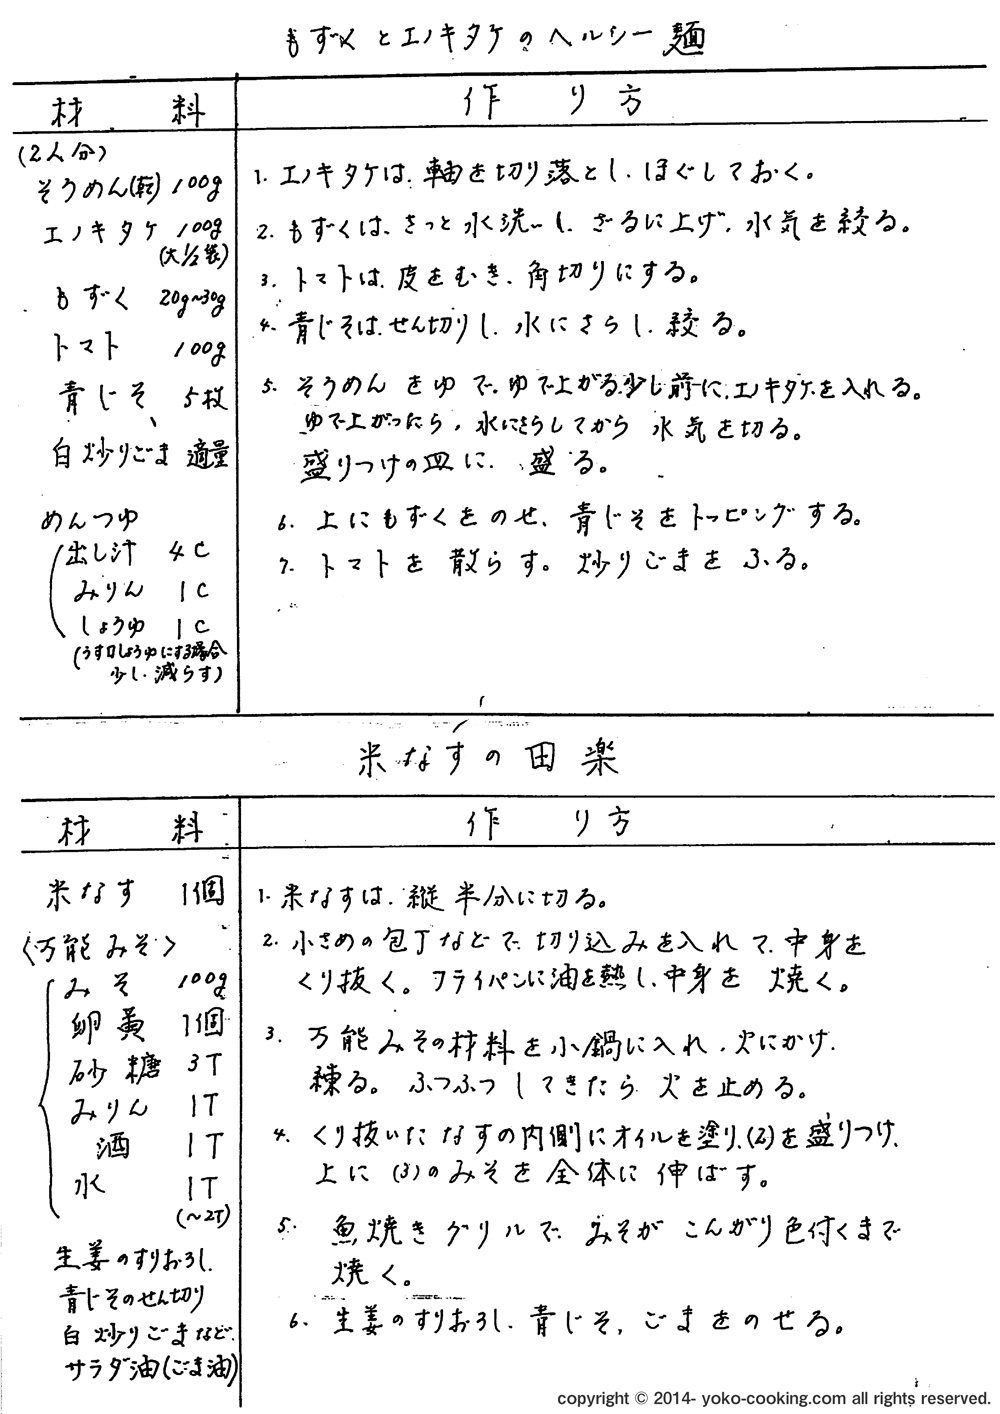 もずくとエノキタケのヘルシー麺
材料
作り方
(2人分)
そうめん(乾) 100g
エノキタケ 100g
(大1/2袋)
もずく 20g~30g
トマト 100g
青じそ 5枚
白炒りごま 適量
めんつゆ
出し汁 4C
みりん 1C
しょうゆ 1C
(うす口しょうゆにする場合
少し減らす)
1. エノキタケは、軸を切り落とし、ほぐしておく。
2. もずくは、さっと水洗いし、ざるに上げ、水気を絞る。
3. トマトは、皮をむき、角切りにする。
4. 青じそは、せん切りし、水にさらし、絞る。
5. そうめんをゆで、ゆで上がる少し前に、エノキタケを入れる。
ゆで上がったら、水にさらしてから水気を切る。
盛りつけの皿に、盛る。
6. 上にもずくをのせ、青じそをトッピングする。
7. トマトを散らす。炒りごまをふる。
米なすの田楽
材料
作り方
米なす 1個
〈万能みそ〉
みそ 100g
卵黄 1個
砂糖 3T
みりん 1T
酒 1T
水 1T
(~2T)
生姜のすりおろし、
青じそのせん切り
白炒りごまなど、
サラダ油(ごま油)
1. 米なすは、縦半分に切る。
2. 小さめの包丁などで、切り込みを入れて、中身を
くり抜く。フライパンに油を熱し、中身を焼く。
3. 万能みその材料を小鍋に入れ、火にかけ、
練る。ふつふつしてきたら火を止める。
4. くり抜いたなすの内側にオイルを塗り、(2)を盛りつけ、
上に(3)のみそを全体に伸ばす。
5. 魚焼きグリルで、みそがこんがり色付くまで
焼く。
6. 生姜のすりおろし、青じそ、ごまをのせる。
copyright © 2014- yoko-cooking.com all rights reserved.